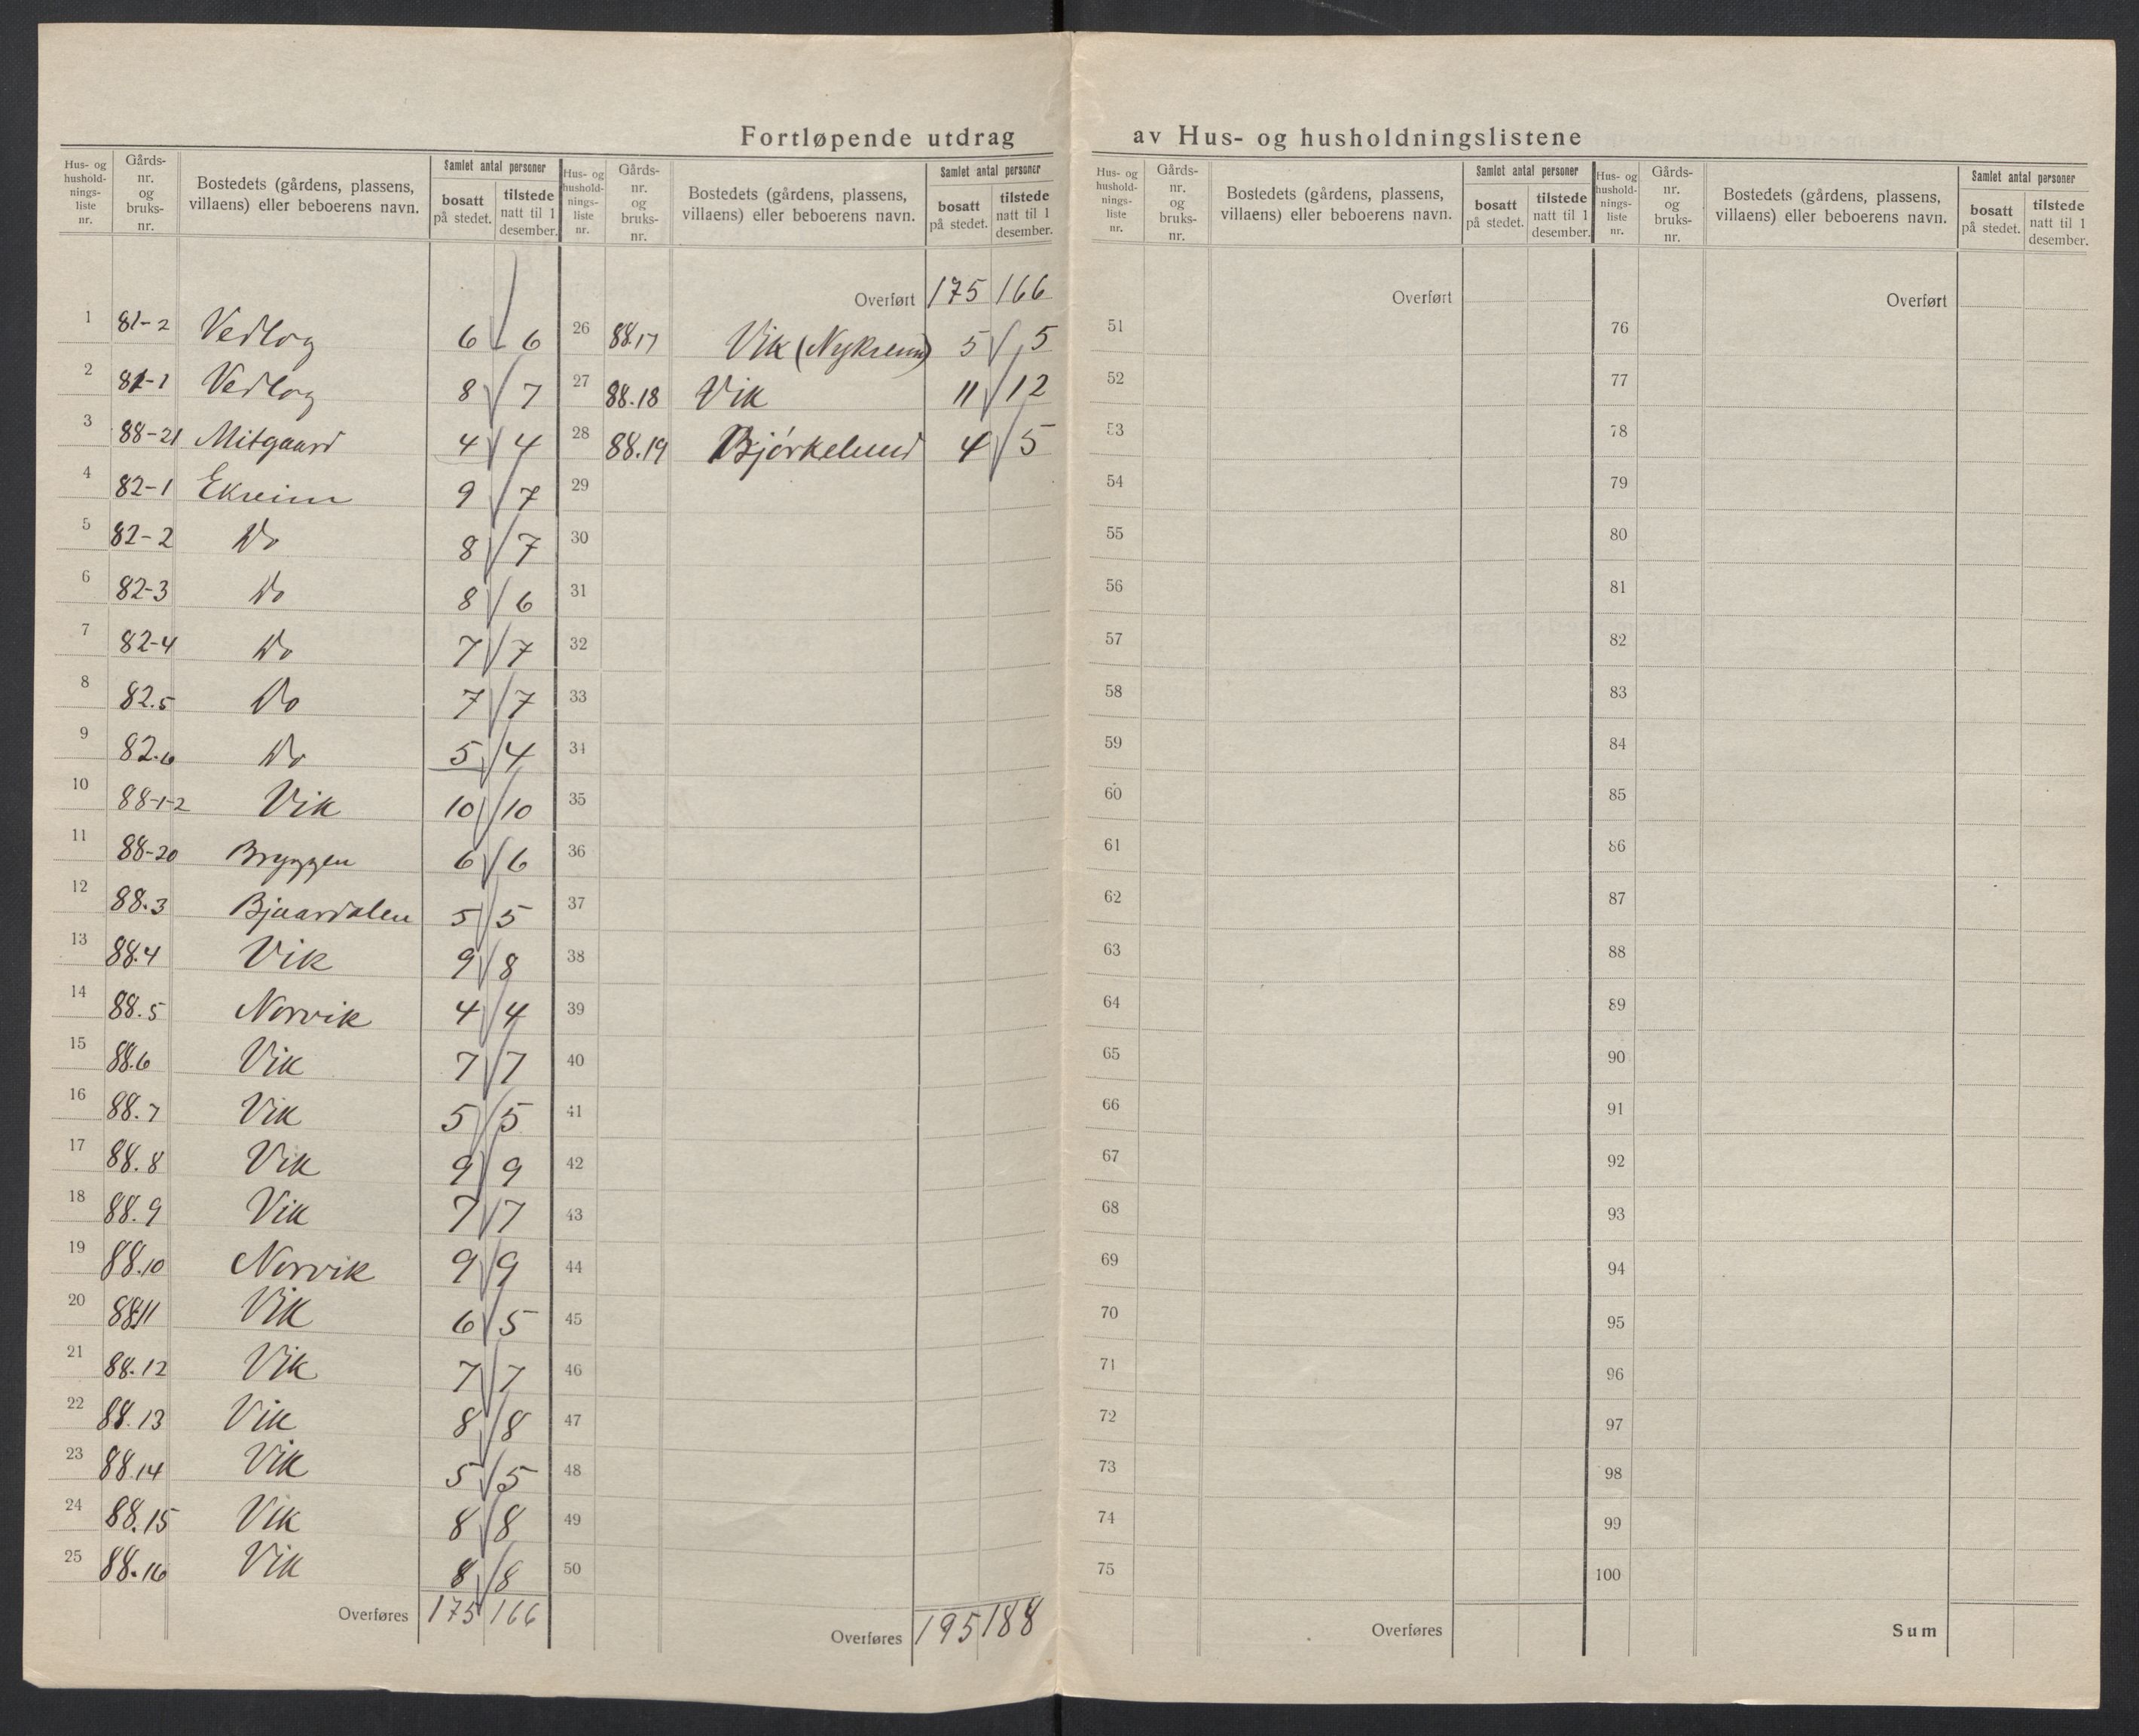 Fortløpende utdrag av Hus- og husholdningslistene
Hus- og hushold-nings-liste nr. | Gårds-nr. og bruks-nr. | Bostedets (gårdens, plassens, villaens) eller beboerens navn. | Samlet antal personer | bosatt på stedet. | tilstede natt til 1 desember.
1 | 81-2 | Vedlog | 6 | 6
2 | 81-1 | Vedlog | 8 | 7
3 | 88-21 | Mitgaard | 4 | 4
4 | 82-1 | Ekreim | 9 | 7
5 | 82-2 | Do | 8 | 7
6 | 82-3 | Do | 8 | 6
7 | 82-4 | Do | 7 | 7
8 | 82.5 | Do | 7 | 7
9 | 82.6 | Do | 5 | 4
10 | 88-1-2 | Vik | 10 | 10
11 | 88-20 | Bryggen | 6 | 6
12 | 88.3 | Bjaardalen | 5 | 5
13 | 88.4 | Vik | 9 | 8
14 | 88.5 | Norvik | 4 | 4
15 | 88.6 | Vik | 7 | 7
16 | 88.7 | Vik | 5 | 5
17 | 88.8 | Vik | 9 | 9
18 | 88.9 | Vik | 7 | 7
19 | 88.10 | Norvik | 9 | 9
20 | 88.11 | Vik | 6 | 5
21 | 88.12 | Vik | 7 | 7
22 | 88.13 | Vik | 8 | 8
23 | 88.14 | Vik | 5 | 5
24 | 88.15 | Vik | 8 | 8
25 | 88.16 | Vik | 8 | 8
Overføres | 175 | 166
Hus- og hushold-nings-liste nr. | Gårds-nr. og bruks-nr. | Bostedets (gårdens, plassens, villaens) eller beboerens navn. | Samlet antal personer | bosatt på stedet. | tilstede natt til 1 desember.
Overført | 175 | 166
26 | 88.17 | Vik | 5 | 5
27 | 88.18 | Vik | 11 | 12
28 | 88.19 | Bjørkelund | 4 | 5
29
30
31
32
33
34
35
36
37
38
39
40
41
42
43
44
45
46
47
48
49
50
Overføres | 195 | 188
Hus- og hushold-nings-liste nr. | Gårds-nr. og bruks-nr. | Bostedets (gårdens, plassens, villaens) eller beboerens navn. | Samlet antal personer | bosatt på stedet. | tilstede natt til 1 desember.
Overført
51
52
53
54
55
56
57
58
59
60
61
62
63
64
65
66
67
68
69
70
71
72
73
74
75
Overføres
Hus- og hushold-nings-liste nr. | Gårds-nr. og bruks-nr. | Bostedets (gårdens, plassens, villaens) eller beboerens navn. | Samlet antal personer | bosatt på stedet. | tilstede natt til 1 desember.
Overført
76
77
78
79
80
81
82
83
84
85
86
87
88
89
90
91
92
93
94
95
96
97
98
99
100
Sum